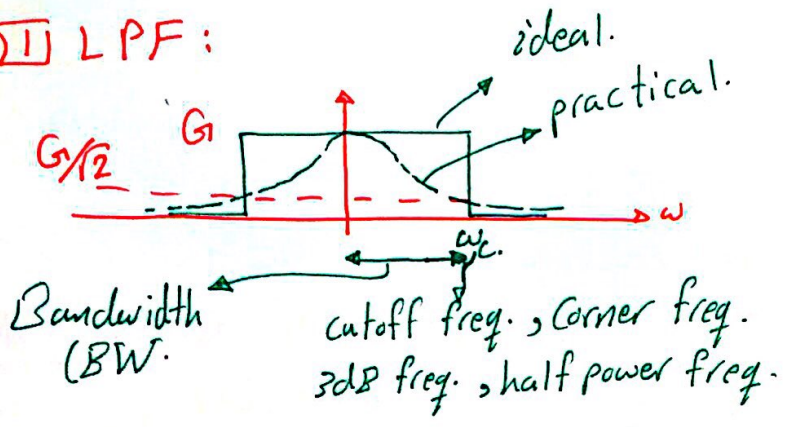 1 LPF:
ideal.
practical.
G
G/√2
ω
ωc.
Bandwidth
(BW.
cutoff freq., Corner freq.
3dB freq., half power freq.